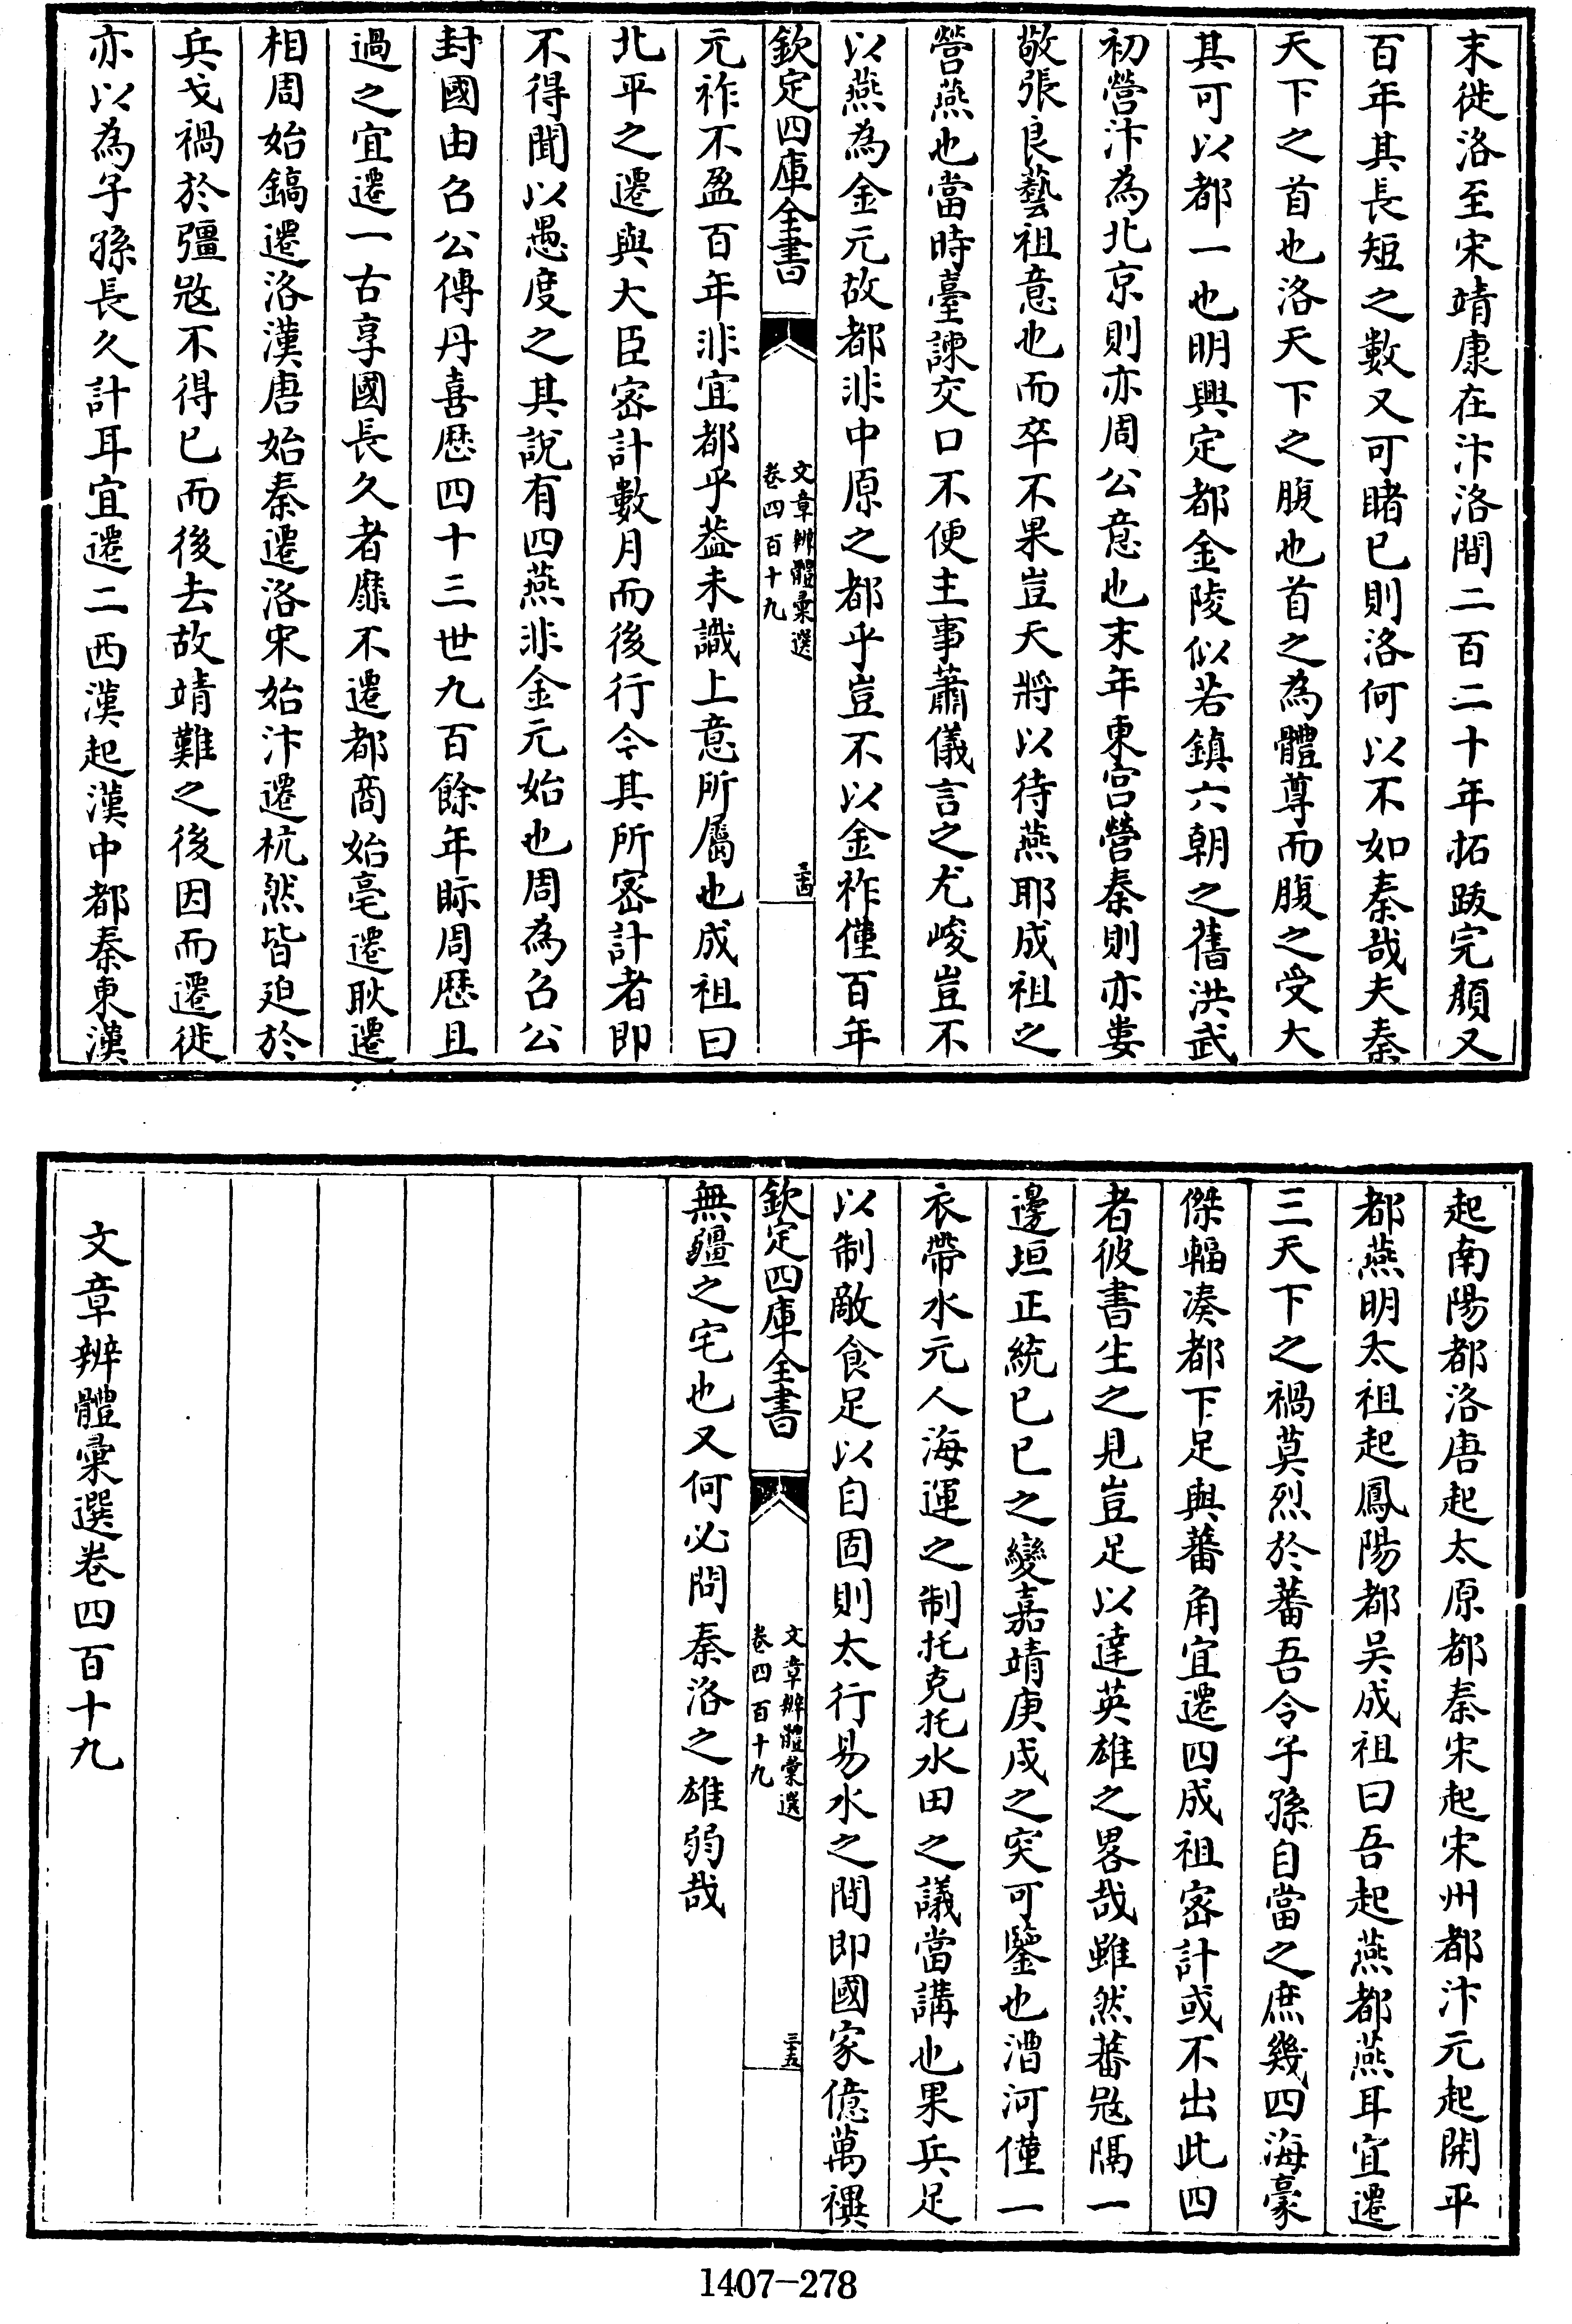 末徙洛至宋靖康在汴洛間二百二十年拓跋完顏又
百年其長短之數又可睹已則洛何以不如秦哉夫秦
天下之首也洛天下之腹也首之為體尊而腹之受大
其可以都一也明興定都金陵似若鎮六朝之舊洪武
初營汴為北京則亦周公意也末年東宮營秦則亦婁
敬張良藝祖意也而卒不果豈天將以待燕耶成祖之
營燕也當時臺諫交口不便主事蕭儀言之尤峻豈不
以燕為金元故都非中原之都乎豈不以金祚僅百年
欽定四庫全書
文章辨體彙選
卷四百十九
三十四
元祚不盈百年非宜都乎葢未識上意所屬也成祖曰
北平之遷與大臣宻計數月而後行今其所宻計者即
不得聞以愚度之其說有四燕非金元始也周為召公
封國由召公傳丹喜歴四十三世九百餘年眎周歴且
過之宜遷一古享國長久者靡不遷都商始亳遷耿遷
相周始鎬遷洛漢唐始秦遷洛宋始汴遷杭然皆廹於
兵戈禍於彊宼不得已而後去故靖難之後因而遷徙
亦以為子孫長久計耳宜遷二西漢起漢中都秦東漢
起南陽都洛唐起太原都秦宋起宋州都汴元起開平
都燕明太祖起鳳陽都吳成祖曰吾起燕都燕耳宜遷
三天下之禍莫烈於蕃吾令子孫自當之庶幾四海豪
傑輻湊都下足與蕃角宜遷四成祖宻計或不出此四
者彼書生之見豈足以達英雄之畧哉雖然蕃宼隔一
邊垣正統已巳之變嘉靖庚戌之突可鑒也漕河僅一
衣帶水元人海運之制托克托水田之議當講也果兵足
以制敵食足以自固則太行易水之間即國家億萬禩
欽定四庫全書
文章辨體彙選
卷四百十九
三十五
無疆之宅也又何必問秦洛之雄弱哉
文章辨體彙選卷四百十九
1407-278